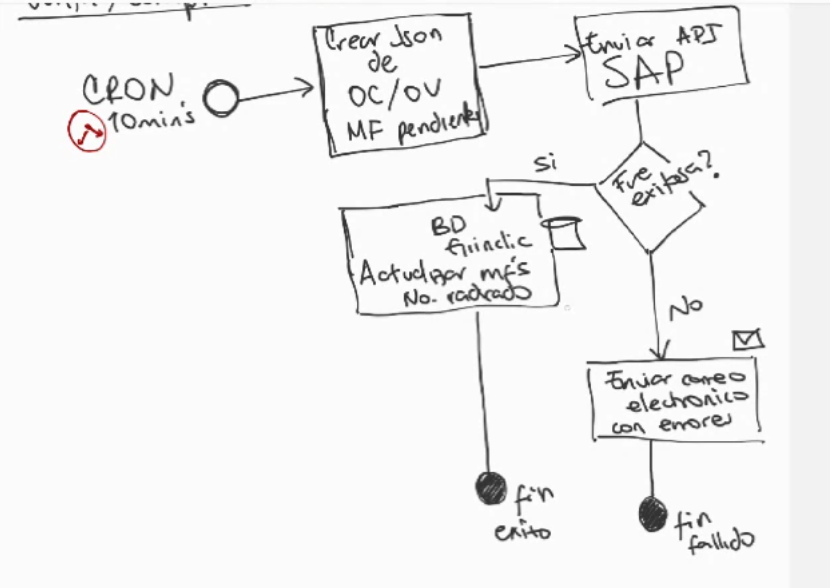 CRON
10min's
Crear Json
de
OC/OV
MF pendientes
Enviar API
SAP
Fue
exitosa?
Si
BD
Actualizar mf's
No. radicado
No
Enviar correo
electronico
con errores
fin
exito
fin
fallido